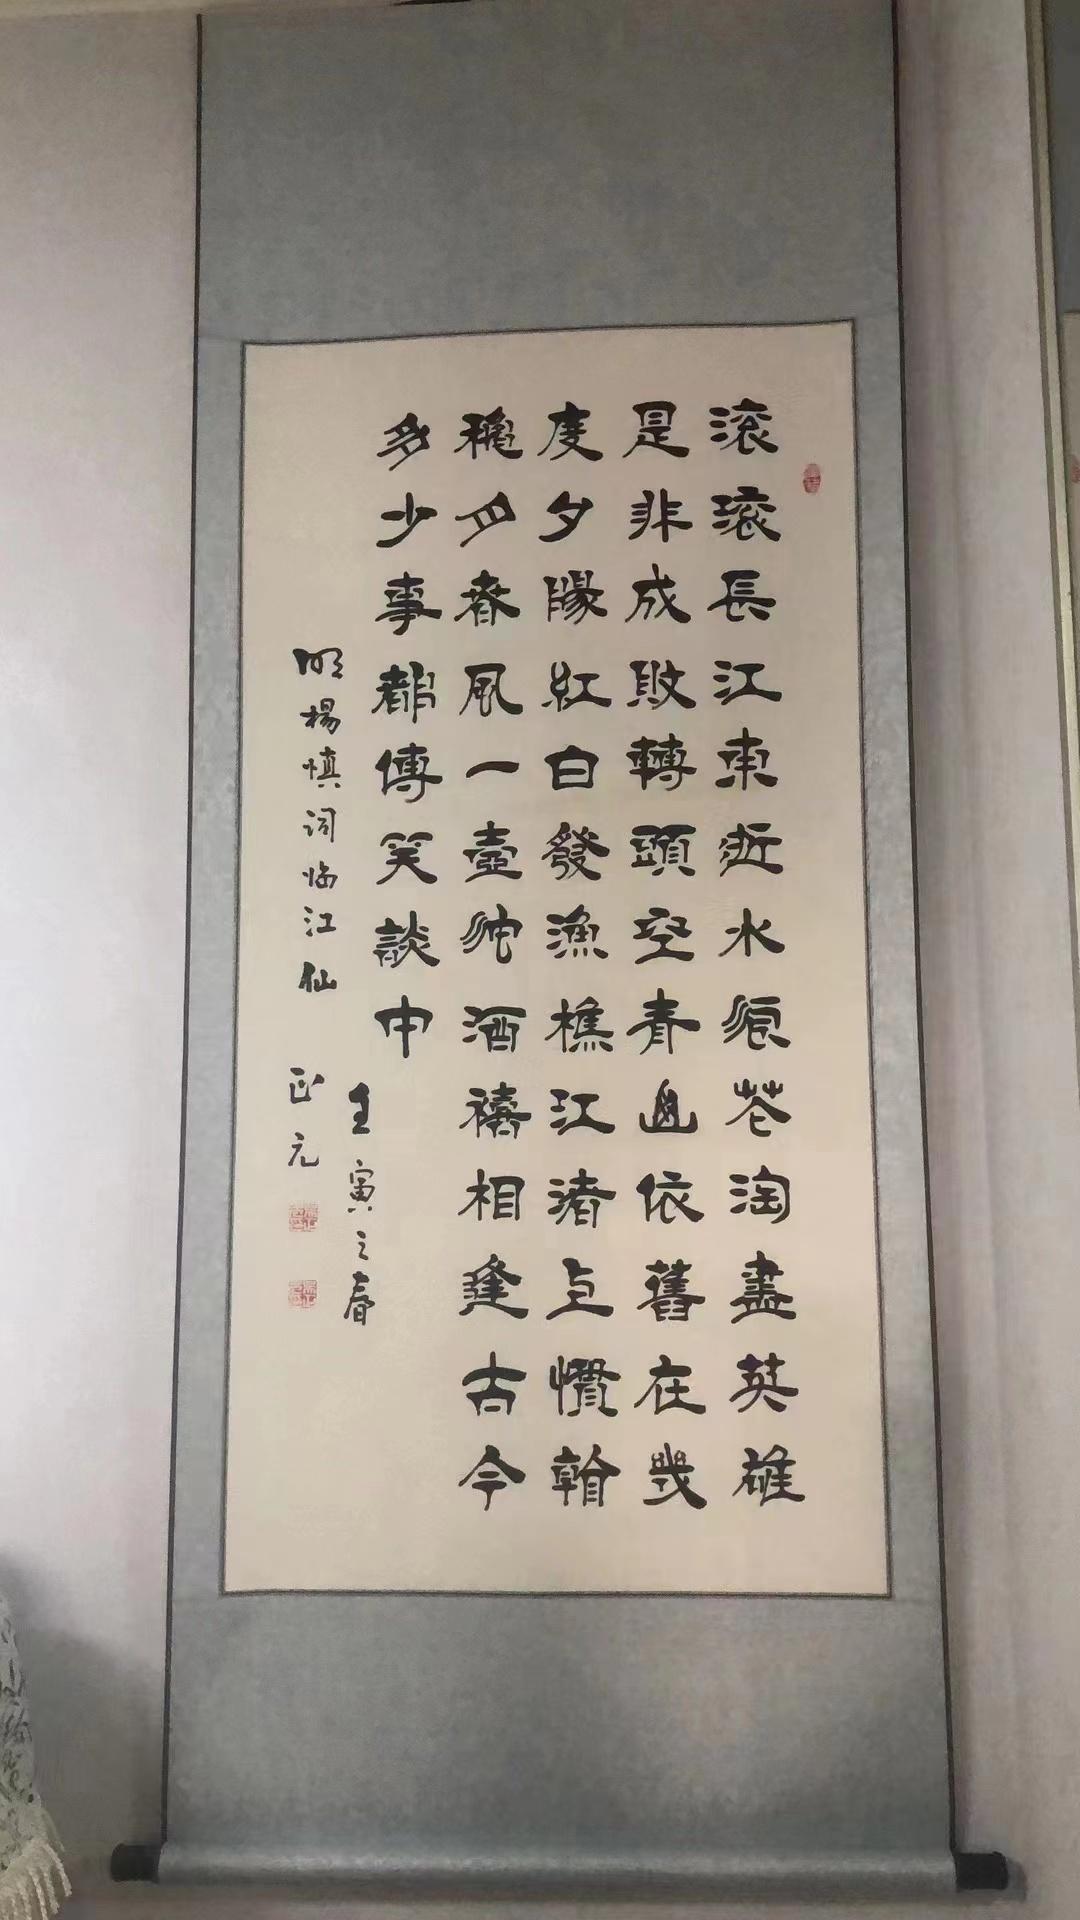 滚滚長江東逝水浪花淘盡英雄
是非成敗轉頭空青山依舊在幾
度夕陽紅白發漁樵江渚上慣看
秋月春風一壺濁酒喜相逢古今
多少事都傳笑談中
壬寅之春
明楊慎词临江仙 正元